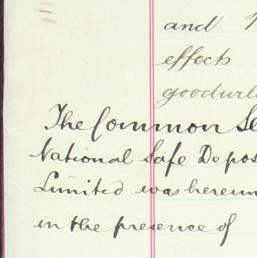 and
effects
goodwill
The Common Se
National Safe Depos
Limited was hereun
in the presence of